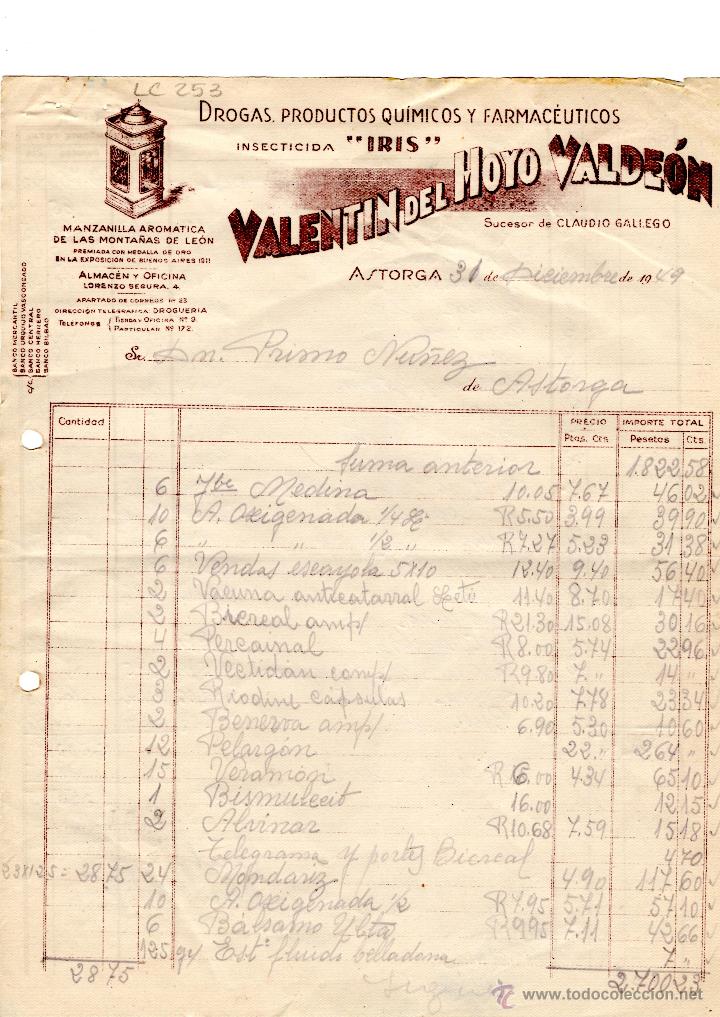 LC 253
DROGAS, PRODUCTOS QUÍMICOS Y FARMACÉUTICOS
INSECTICIDA "IRIS"
VALENTIN DEL HOYO VALDEÓN
Sucesor de CLAUDIO GALLEGO
MANZANILLA AROMATICA
DE LAS MONTAÑAS DE LEÓN
PREMIADA CON MEDALLA DE ORO
EN LA EXPOSICION DE BUENOS AIRES 1911
ALMACÉN Y OFICINA
LORENZO SEGURA, 4
APARTADO DE CORREOS Nº 23
DIRECCION TELEGRAFICA: DROGUERIA
TELÉFONOS TIENDA Y OFICINA Nº 9
PARTICULAR Nº 172
C/C
BANCO MERCANTIL
BANCO URQUIJO VASCONGADO
BANCO CENTRAL
BANCO HERRERO
BANCO BILBAO
ASTORGA 31 de Diciembre de 1949
Sr. Dn. Primo Nuñez
de Astorga
Cantidad PRECIO IMPORTE TOTAL
Ptas. Cts Pesetas Cts.
Suma anterior 1.822 58
6 Medina 10.05 7.67 46 02
10 A. Oxigenada 1/4 R5.50 3.99 39 90
6 " " 1/2 " R7.27 5.23 31 38
6 Vendas escayola 5x10 12.40 9.40 56 40
2 Vacuna anticatarral 11.40 8.70 17 40
2 Bicreal amp/ R21.30 15.08 30 16
4 Percainal R8.00 5.74 22 96
2 R9.80 7." 14 "
3 cápsulas 10.20 7.78 23 34
2 Benerva amp/ 6.90 5.30 10 60
12 Pelargón 22." 264 "
15 Veramón R6.00 4.34 65 10
1 16.00 12 15
2 R10.68 7.59 15 18
Telegrama y portes Bicreal 4 70
23x1.25 = 28.75 24 Mondariz 4.90 117 60
10 A. Oxigenada 1/2 R7.95 5.71 57 10
6 Bálsamo R9.95 7.11 42 66
125 gr Estº fluido belladona 7 "
28 75 2.700 23
© www.todocoleccion.net